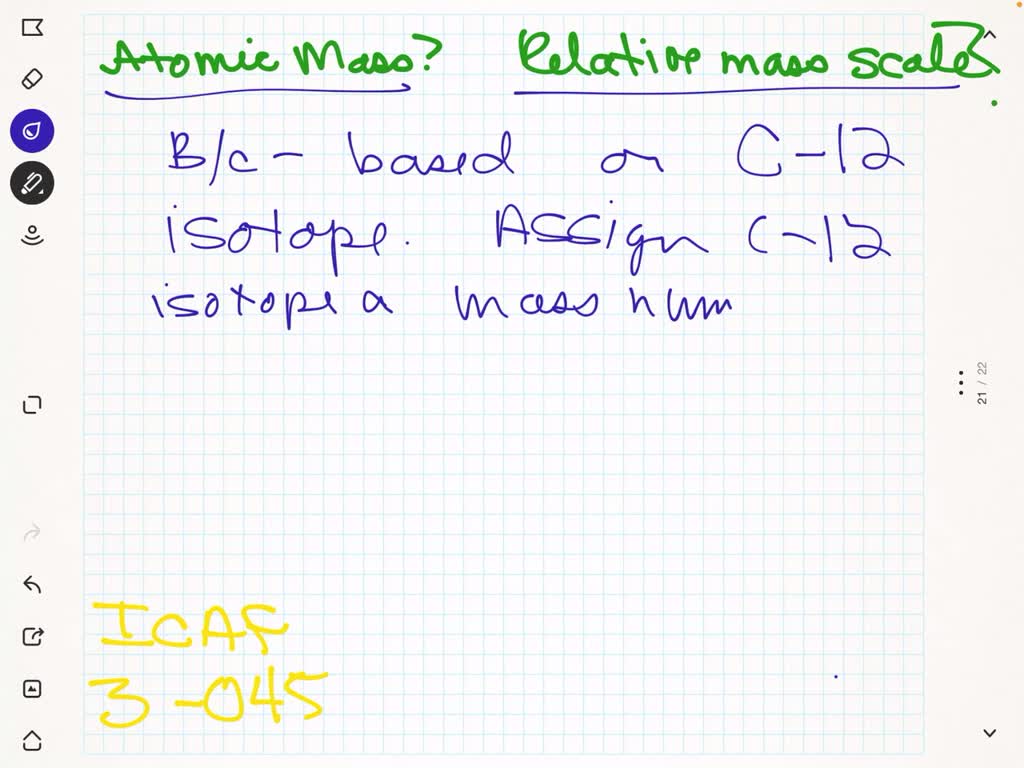 Atomic Mass? Relative mass scale?
B/c - based on C-12
isotope. Assign C-12
isotope a mass num
21 / 22
ICAF
3-045